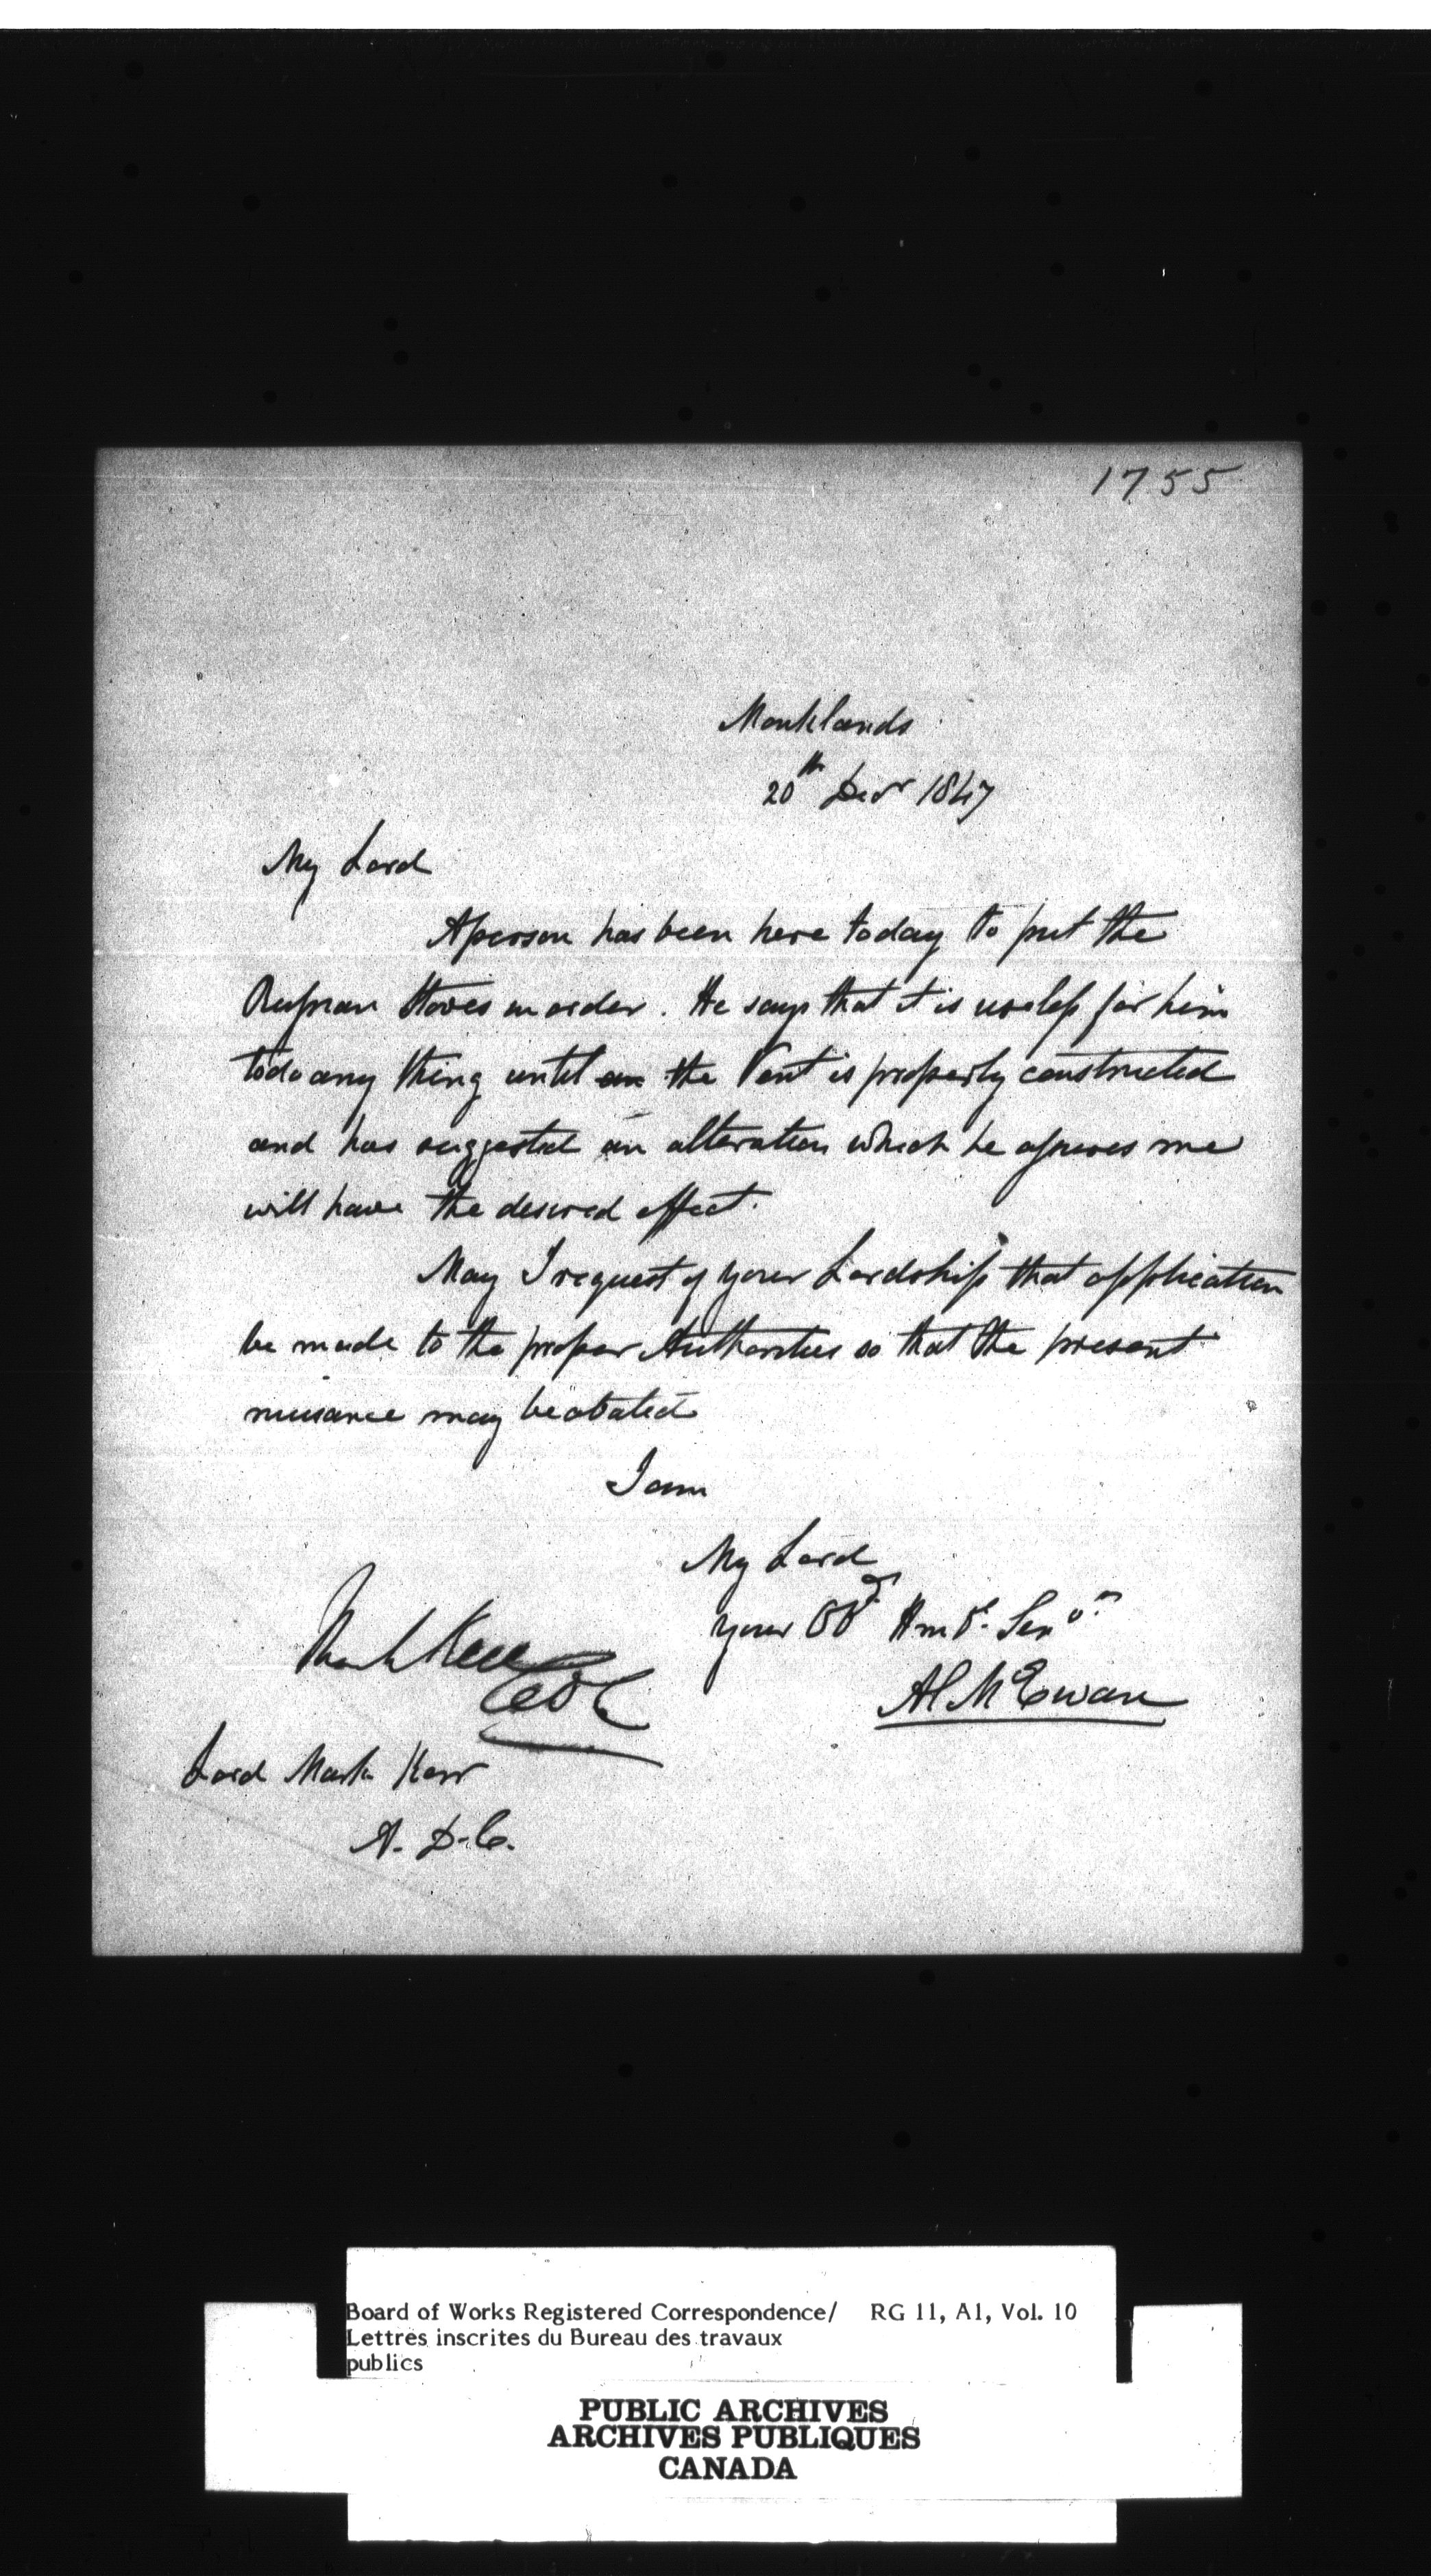 1755
Monklands
20th Decr 1847
My Lord
A person has been here today to put the
Russian Stoves in order. He says that it is useless for him
to do any thing until an the Vent is properly constructed
and has suggested an alteration which he assures me
will have the desired effect.
May I request of your Lordship that application
be made to the proper Authorities so that the present
nuisance may be abated
I am
My Lord
your Obt Hmbl. Servt
Mark Kerr
ADC
Al McEwan
Lord Mark Kerr
A. D. C.
Board of Works Registered Correspondence/ RG 11, A1, Vol. 10
Lettres inscrites du Bureau des travaux
publics
PUBLIC ARCHIVES
ARCHIVES PUBLIQUES
CANADA